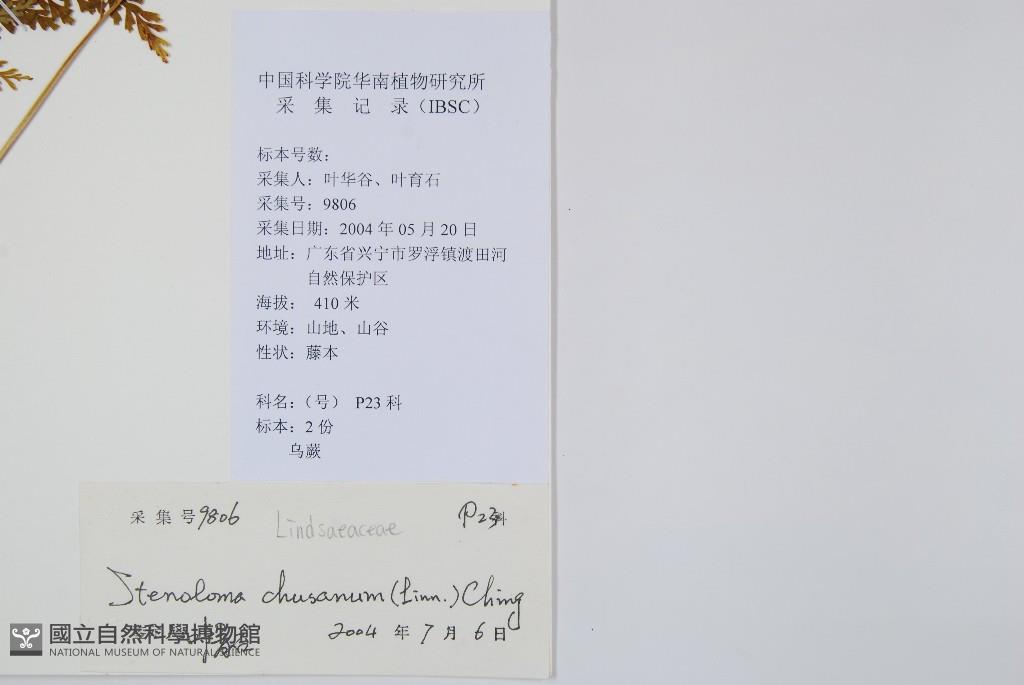 中国科学院华南植物研究所
采 集 记 录（IBSC）
标本号数：
采集人：叶华谷、叶育石
采集号：9806
采集日期：2004 年 05 月 20 日
地址：广东省兴宁市罗浮镇渡田河
自然保护区
海拔： 410 米
环境：山地、山谷
性状：藤本
科名：（号） P23 科
标本：2 份
乌蕨
采 集 号 9806 Lindsaeaceae P23科
Stenoloma chusanum (Linn.) Ching
2004 年 7 月 6 日
國立自然科學博物館
NATIONAL MUSEUM OF NATURAL SCIENCE